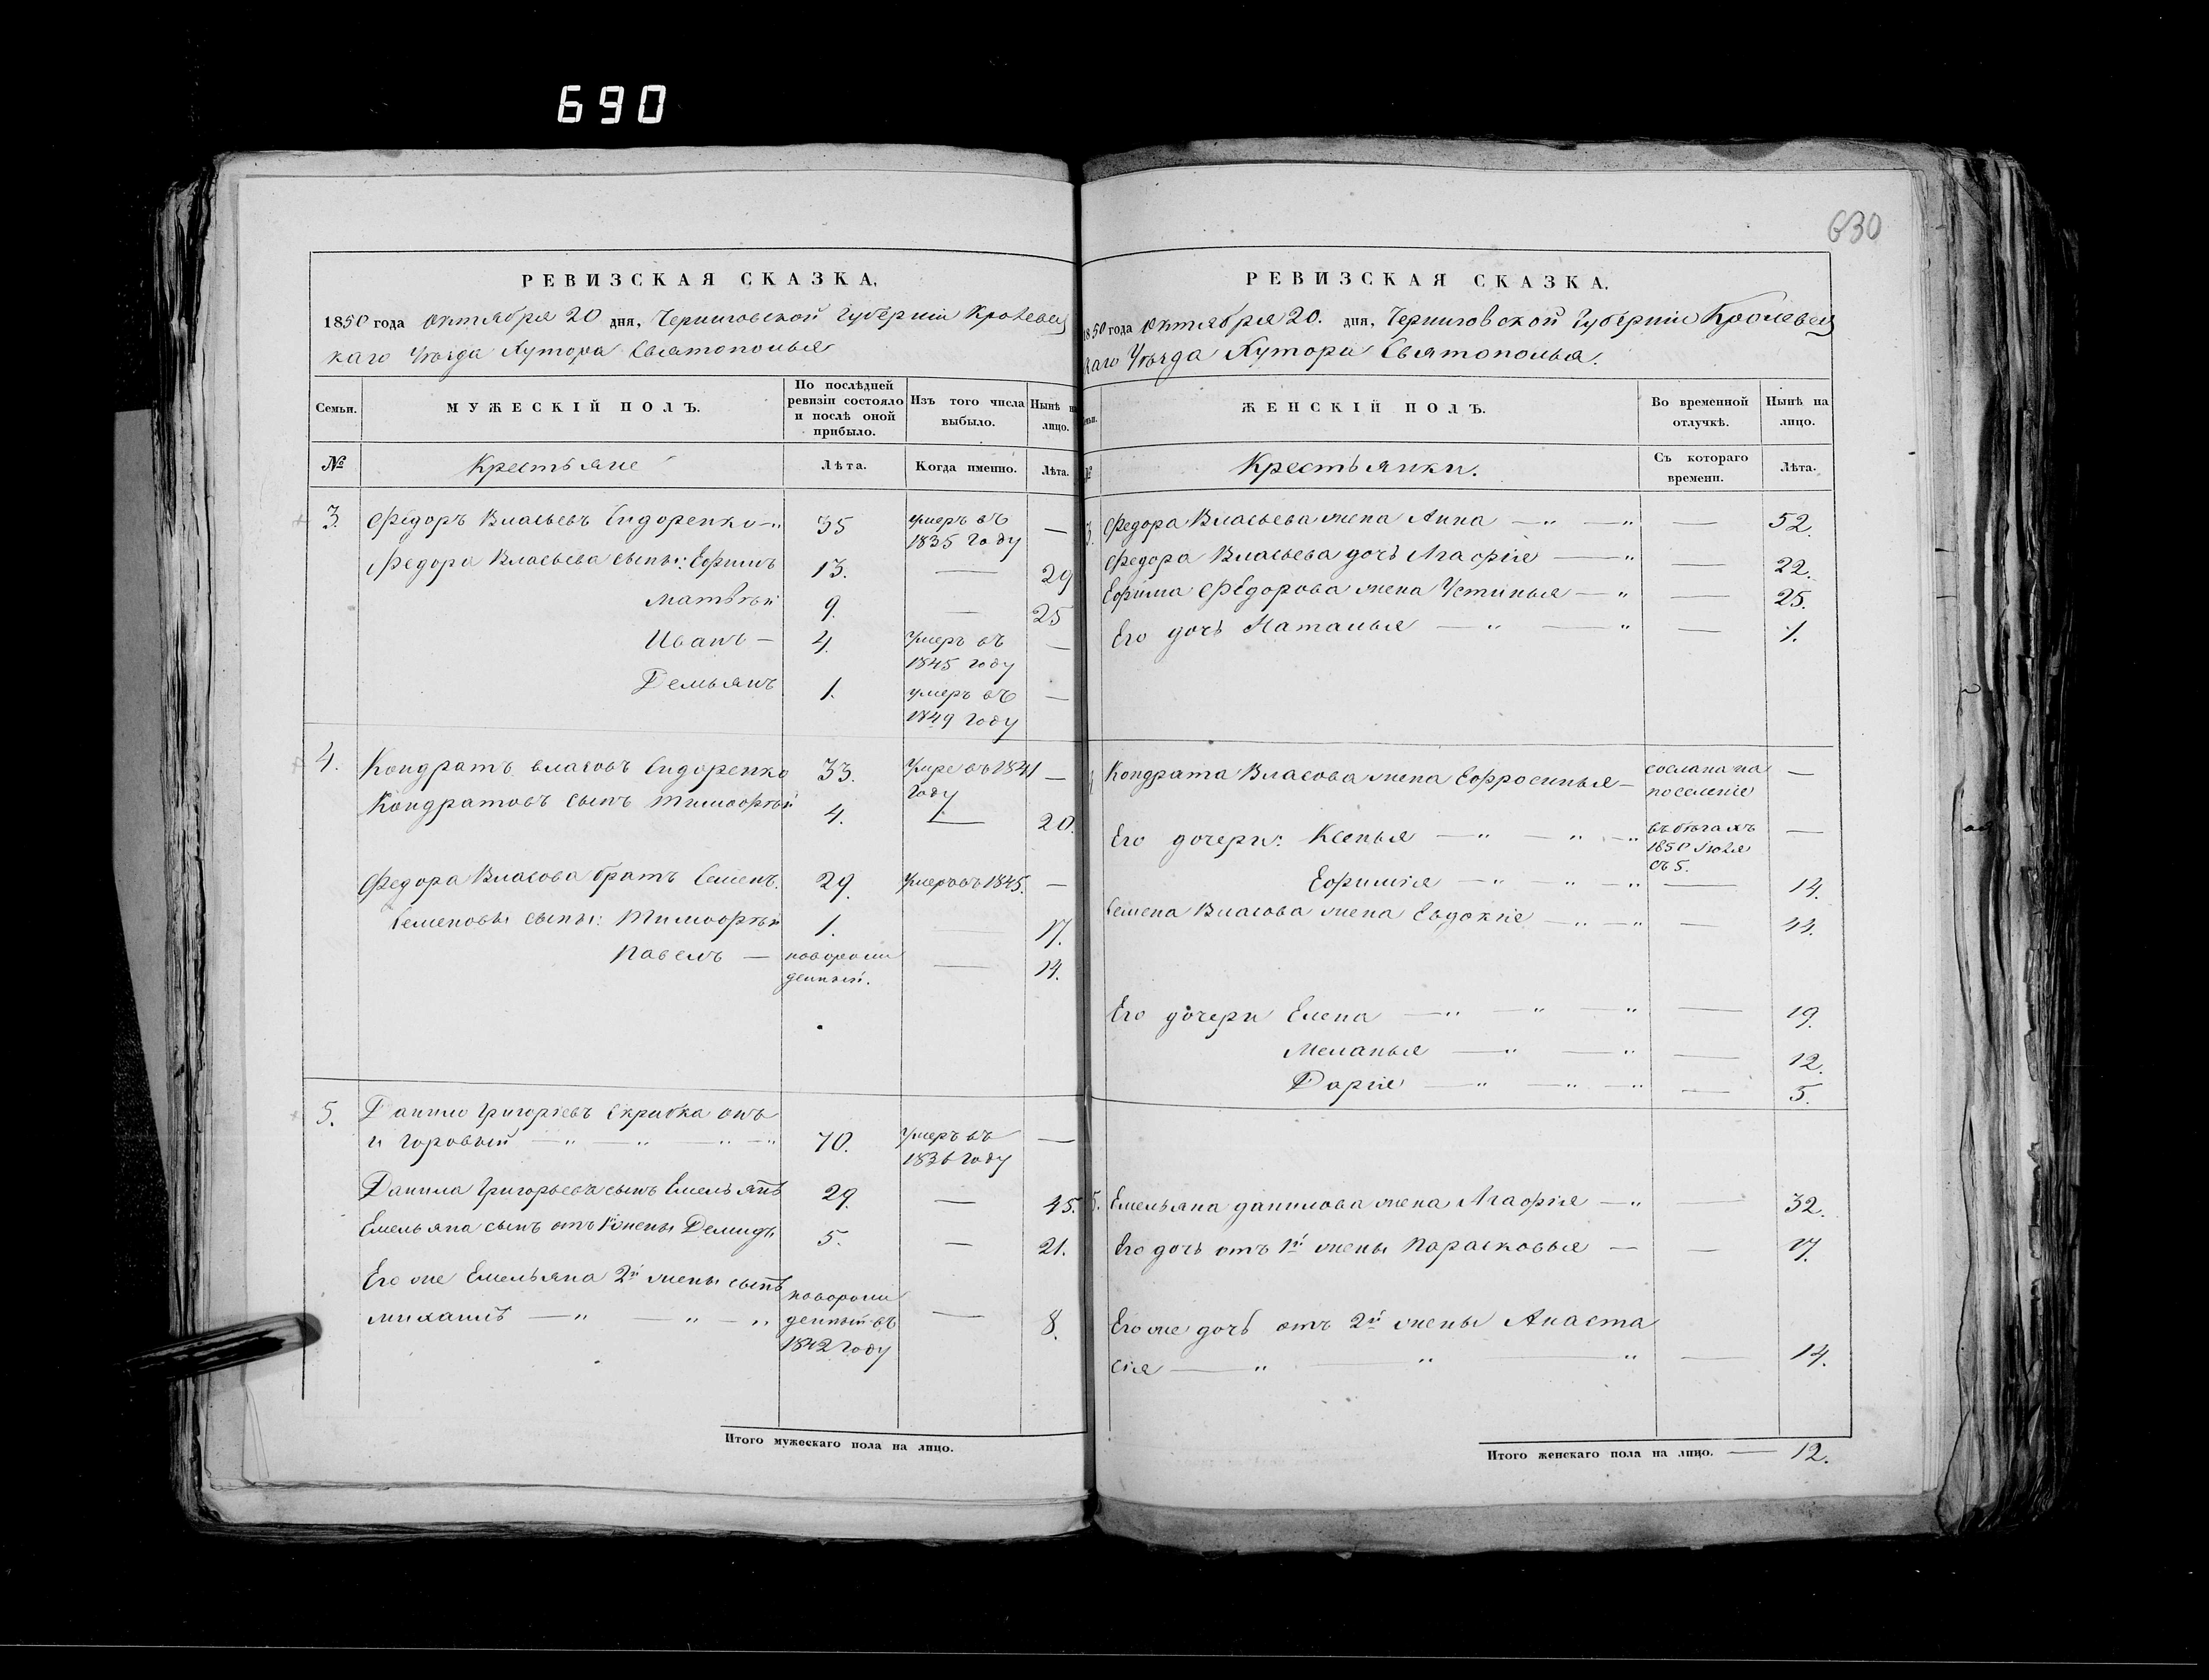 690
630
РЕВИЗСКАЯ СКАЗКА.
1850 года октября 20 дня, Черниговской Губерніи Кролевец
каго Уѣзда Хутора Святополья
Семьи.
МУЖЕСКІЙ ПОЛЪ.
По послѣдней
ревизіи состояло
и послѣ оной
прибыло.
Изъ того числа
выбыло.
Нынѣ на
лицо.
№
Крестьяне
Лѣта.
Когда именно.
Лѣта.
3. Федоръ Власьевъ Сидоренко 35 умеръ въ
1835 году —
Федора Власьева сыны: Ефимъ 13. — 29
Матвѣй 9. — 25
Иванъ — 4. Умеръ въ
1845 году —
Демьянъ 1. умеръ въ
1849 году —
4. Кондратъ власовъ Сидоренко 33. Умре въ 1841
году —
Кондратовъ сынъ Тимофѣй 4. — 20.
Федора Власова братъ Семенъ. 29. Умеръ въ 1845. —
Семеновы сыны: Тимофѣй 1. — 17.
Павелъ — новорож
денный. — 14.
5. Данило Григоріевъ Скрибка онъ
и Горовый — „ — „ — „ — „ 70. Умеръ въ
1836 году —
Данила Григорьева сынъ Емельянъ 29. — 45.
Емельяна сынъ отъ 1й жены Демидъ 5. — 21.
Его же Емельяна 2й жены сынъ
михаилъ — „ — „ — „ новорож
денный въ
1842 году — 8.
Итого мужескаго пола на лицо.
РЕВИЗСКАЯ СКАЗКА.
1850 года октября 20. дня, Черниговской Губерніи Кролевец
каго Уѣзда Хутора Святополья.
ЖЕНСКІЙ ПОЛЪ.
Во временной
отлучкѣ.
Нынѣ на
лицо.
№
Крестьянки.
Съ котораго
времени.
Лѣта.
3. Федора Власьева жена Анна — „ — „ — 52.
Федора Власьева дочь Агафія — „ — 22.
Ефима Федорова жена Устинья — „ — 25.
Его дочь Наталья — „ — „ — 1.
Кондрата Власова жена Ефросинья — сослана на
поселеніе —
Его дочери: Ксенья — „ — „ — „ въ бѣгахъ
1850 Июля
съ 5. —
Ефимія — „ — „ — „ — 14.
Семена Власова жена Евдокіе — „ — „ — 44.
Его дочери Елена — „ — „ — „ — 19.
Меланья — „ — „ — 12.
Дарія — „ — „ — „ — 5.
5. Емельяна данилова жена Агафія — „ — 32.
Его дочь отъ 1й жены Парасковья — — 17.
Его же дочь отъ 2й жены Анаста
сія — „ — „ — „ — 14.
Итого женскаго пола на лицо. — 12.